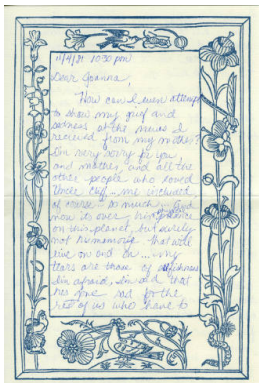 11/4/81 10:30 pm
Dear Joanna,
How can I even attempt
to show my grief and
sadness at the news I
received from my mother?
I'm very sorry for you,
and mother, and all the
other people who loved
Uncle Cliff – me included
of course so much – God
now it's over, his
on this planet, but surely
not humanity that will
live on and on... my
tears are those of selfishness
I'm afraid, I'm sad that
he's gone, sad for the
rest of us who have to